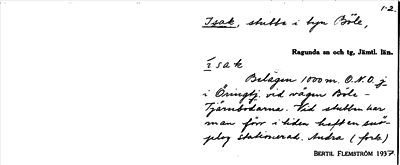 1-2.
Isak, stubbe i byn Böle,
Ragunda sn och tg, Jämtl. län.
isak
Belägen 1000 m. O.N.O.
i Öringtj. vid vägen Böle –
Tjärnbodarna. Vid stubben har
man förr i tiden haft en snö-
plog stationerad. Andra (fork)
BERTIL FLEMSTRÖM 1937.